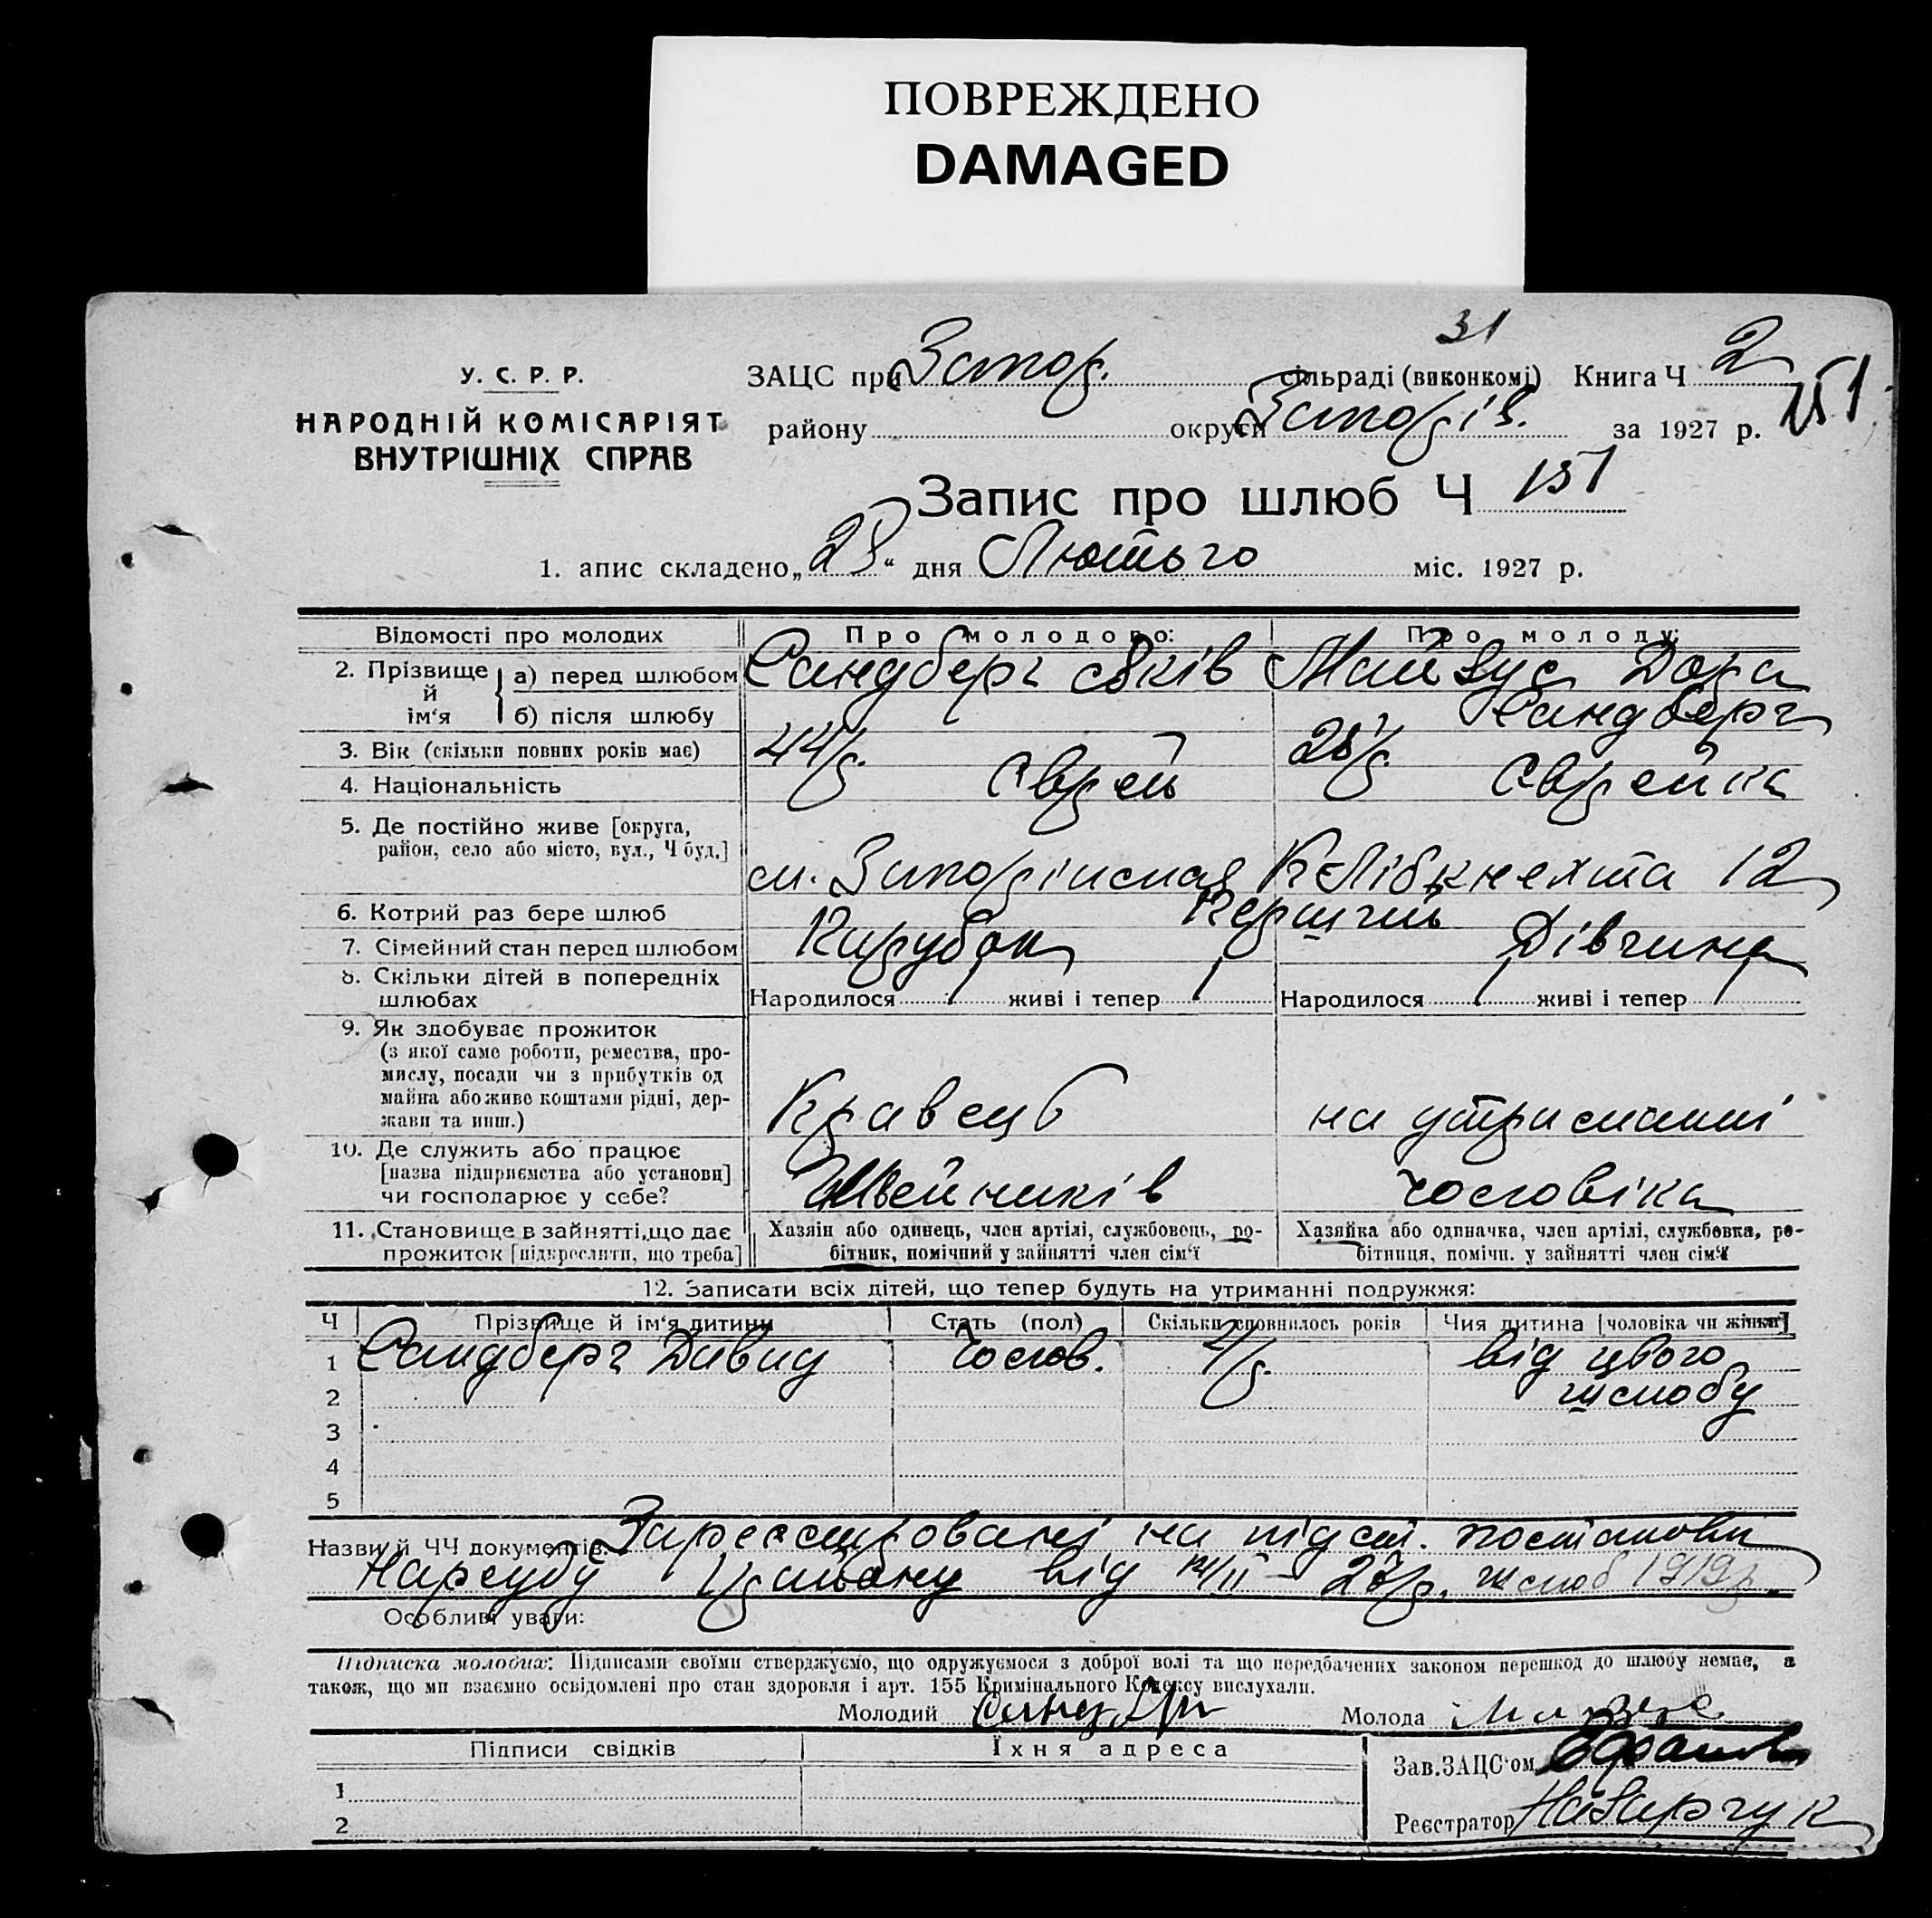 ПОВРЕЖДЕНО
DAMAGED
31
У. С. Р. Р.
НАРОДНІЙ КОМІСАРІЯТ
ВНУТРІШНІХ СПРАВ
ЗАЦС при Запор. сільраді (виконкомі) Книга Ч 2
району округи Запоріз. за 1927 р.
151
Запис про шлюб Ч 151
1. апис складено „28“ дня Лютого міс. 1927 р.
Відомості про молодих Про молодого: Про молоду:
2. Прізвище й ім'я а) перед шлюбом Сандберг Яків Майзус Дора
б) після шлюбу Сандберг
3. Вік (скільки повних років має) 44/р. 28/р.
4. Національність Єврей Єврейка
5. Де постійно живе [округа,
район, село або місто, вул., Ч буд.]
м. К Лібкнехта 12
6. Котрий раз бере шлюб Перший
7. Сімейний стан перед шлюбом Парубок Дівчина
8. Скільки дітей в попередніх
шлюбах Народилося / живі і тепер / Народилося / живі і тепер /
9. Як здобуває прожиток
(з якої саме роботи, ремества, про-
мислу, посади чи з прибутків од
майна або живе коштами рідні, дер-
жави та инш.) Кравець на утриманні
10. Де служить або працює
[назва підприємства або установи]
чи господарює у себе? Швейників чоловіка
11. Становище в зайнятті, що дає
прожиток [підкреслити, що треба]
Хазяін або одинець, член артілі, службовець, ро-
бітник, помічний у зайнятті член сім'ї
Хазяйка або одиначка, член артілі, службовка, ро-
бітниця, помічн. у зайнятті член сім'ї
12. Записати всіх дітей, що тепер будуть на утриманні подружжя:
Ч Прізвище й ім'я дитини Стать (пол) Скільки сповнилось років Чия дитина [чоловіка чи жінки]
1 Сандберг Давид Чолов. від цього
2 шлюбу
3
4
5
Назви й ЧЧ документів: Зареєстровані на підст. постанови
Нарсуду від 14/II 27/р. шлюб 1919р.
Особливі уваги:
Підписка молодих: Підписами своїми стверджуємо, що одружуємося з доброї волі та що передбачених законом перешкод до шлюбу немає, а
також, що ми взаємно освідомлені про стан здоровля і арт. 155 Кримінального Кодексу вислухали.
Молодий Молода
Підписи свідків Їхня адреса
Зав. ЗАЦС'ом
1
Реєстратор
2